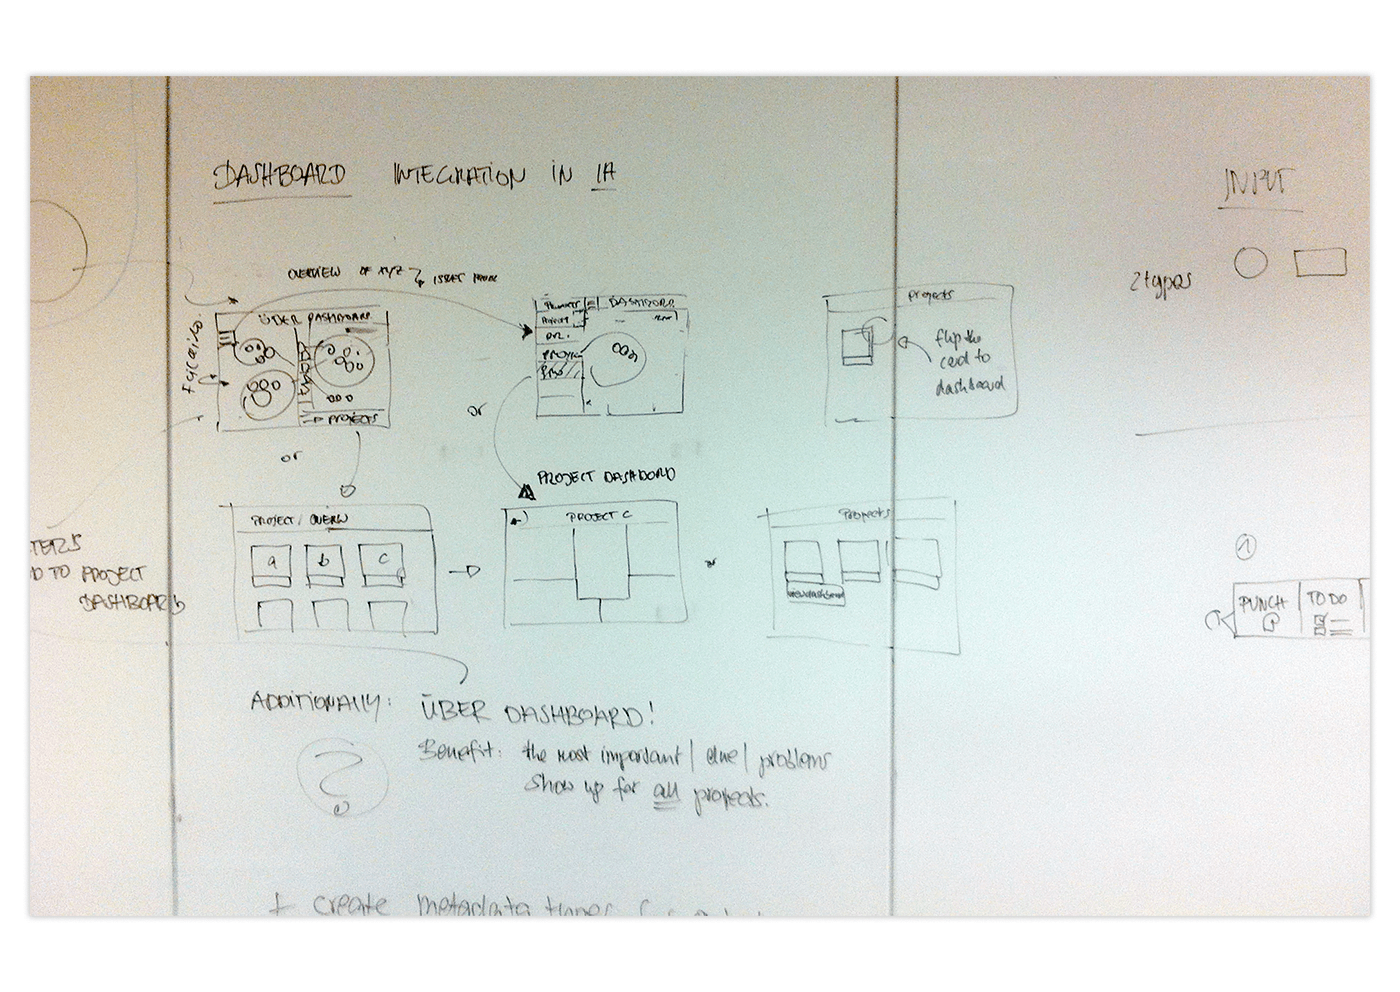 DASHBOARD INTEGRATION IN IA
INPUT
2 types
OVERVIEW OF XYZ
ÜBER DASHBOARD
→ PROJECTS
or
or
DASHBOARD
projects
flip the
card to
dashboard
PROJECT DASHBORD
PROJECT / OVERW
a b c
PROJECT C
or
Projects
view dashboard
TERS
D TO PROJECT
DASHBOARD
1
PUNCH
TO DO
ADDITIONALLY: ÜBER DASHBOARD!
?
Benefit: the most important / due / problems
show up for all projects.
+ create metadata types